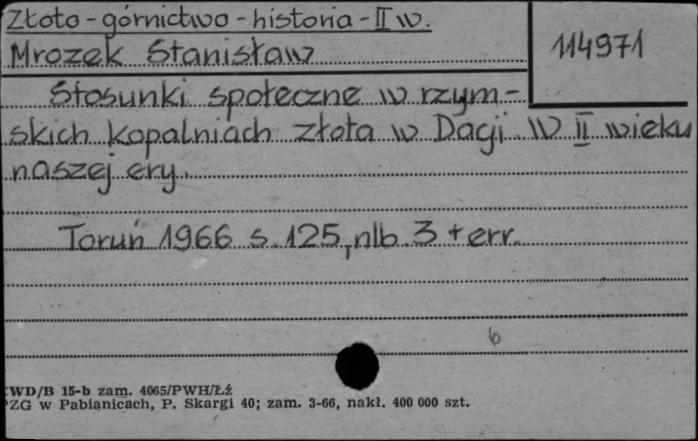 Złoto - górnictwo - historia - II w.
Mrozek Stanisław
114971
Stosunki społeczne w rzym-
skich kopalniach złota w Dacji w II wieku
naszej ery.
Toruń 1966 s. 125, nlb. 3 + err.
6
WD/B 15-b zam. 4065/PWH/Łż
PZG w Pabianicach, P. Skargi 40; zam. 3-66, nakł. 400 000 szt.